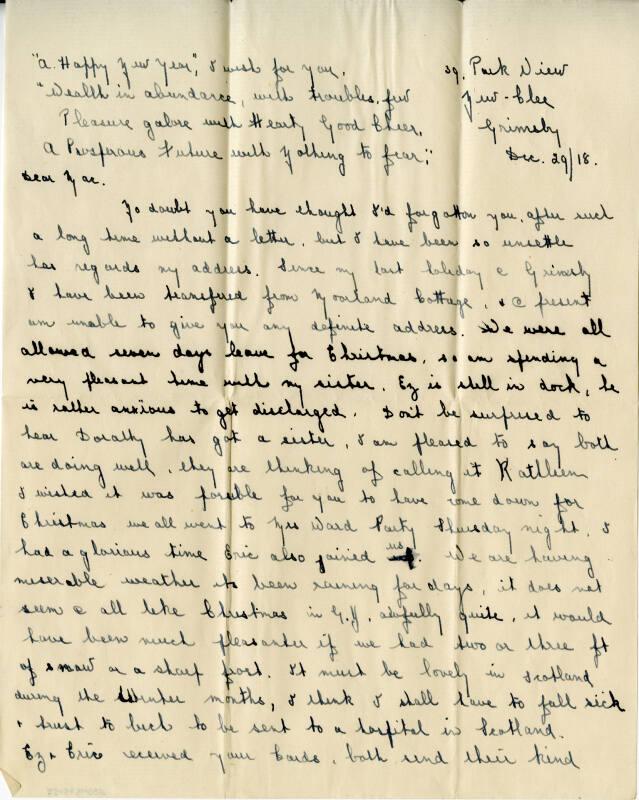 "A Happy New Year", I wish for you,
39, Park View
"Wealth in abundance, with troubles few
New-Clee
Pleasure galore with Hearty Good Cheer,
Grimsby
A Prosperous Future with Nothing to fear;"
Dec. 29/18.
Dear Mac.
No doubt you have thought I'd forgotton you, after such
a long time without a letter, but I have been so unsettle
has regards my address. Since my last holiday @ Grimsby
I have been transfured from Moorland Cottage, & @ present
am unable to give you any definite address. We were all
allowed seven days leave for Christmas, so am spending a
very pleasant time with my sister. Ez is still in dock, he
is rather anxious to get discharged. Don't be surprised to
hear Dorathy has got a sister, I am pleased to say both
are doing well, they are thinking of calling it Kathleen
I wished it was possible for you to have come down for
Christmas we all went to Mrs Ward Party Thursday night, I
had a glorious time Eric also joined us. We are having
miserable weather its been raining for days, it does not
seem @ all like Christmas in G.Y, awfully quite, it would
have been much pleasanter if we had two or three ft
of snow or a sharp frost. It must be lovely in Scotland
during the Winter months, I think I shall have to fall sick
& trust to luck to be sent to a hospital in Scotland.
Ez & Eric received your Cards, both send their kind